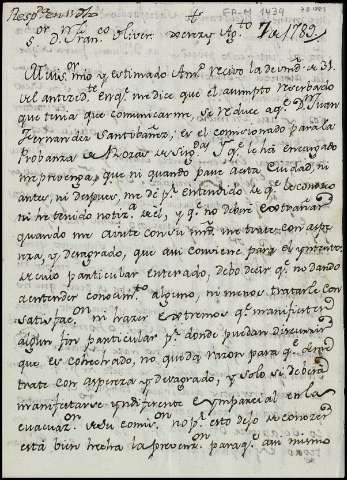 Resp.da en 11 D.ho
EP-M 1439
S.or D.n Fran.co Oliver Vezezas Ag.to 7 de 1789
Mui s.or mio y estimado Am.o recivo la de vm.d de 31
del antezed.te en q.e me dice que el asumpto reserbado
que tenia que comunicarme, se reduce a q.e D.n Juan
Fernandez Santibañez, es el comisionado para la
Probanza de Rozas de Sig.da y q.e le ha encargado
me prevenga, que ni quando pase a esta Ciudad, ni
antes, ni despues, me dé p.r entendido de q.e le conozco
ni he tenido notiz.a de él, y q.e no debere extrañar
quando me aviste con su mrd me trate con aspe-
reza, y desagrado, que asi conviene para el yntento
de cuio particular enterado, debo decir q.e no dando
a entender conocim.to alguno, ni menos tratarle con
satisfac.on ni hazer extremos q.e manifiesten
algun fin particular p.r donde puedan discurrir
que es cohechado, no queda razon para q.e
trate con aspereza y desagrado, y solo se deberá
manifestarse yndiferente e ymparcial en la
evacuaz.on de su comis.on no p.r esto dejo de conozer
está bien hecha la prevenz.on para q.e asi mismo